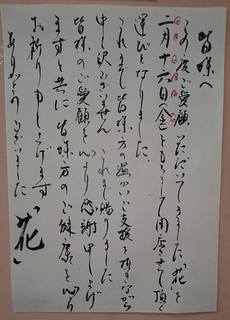 皆様へ
この度ご愛顧いただいてきました「花」を
二月十六日(金)をもちまして閉店させて頂く
運びとなりました。
これまで皆様方の温かいご支援を頂きながら
申し訳ございません これまで賜りました
皆様のご愛顧を心より感謝申し上げ
ますと共に 皆様方のご健康を心より
お祈り申し上げます
ありがとうございました
「花」